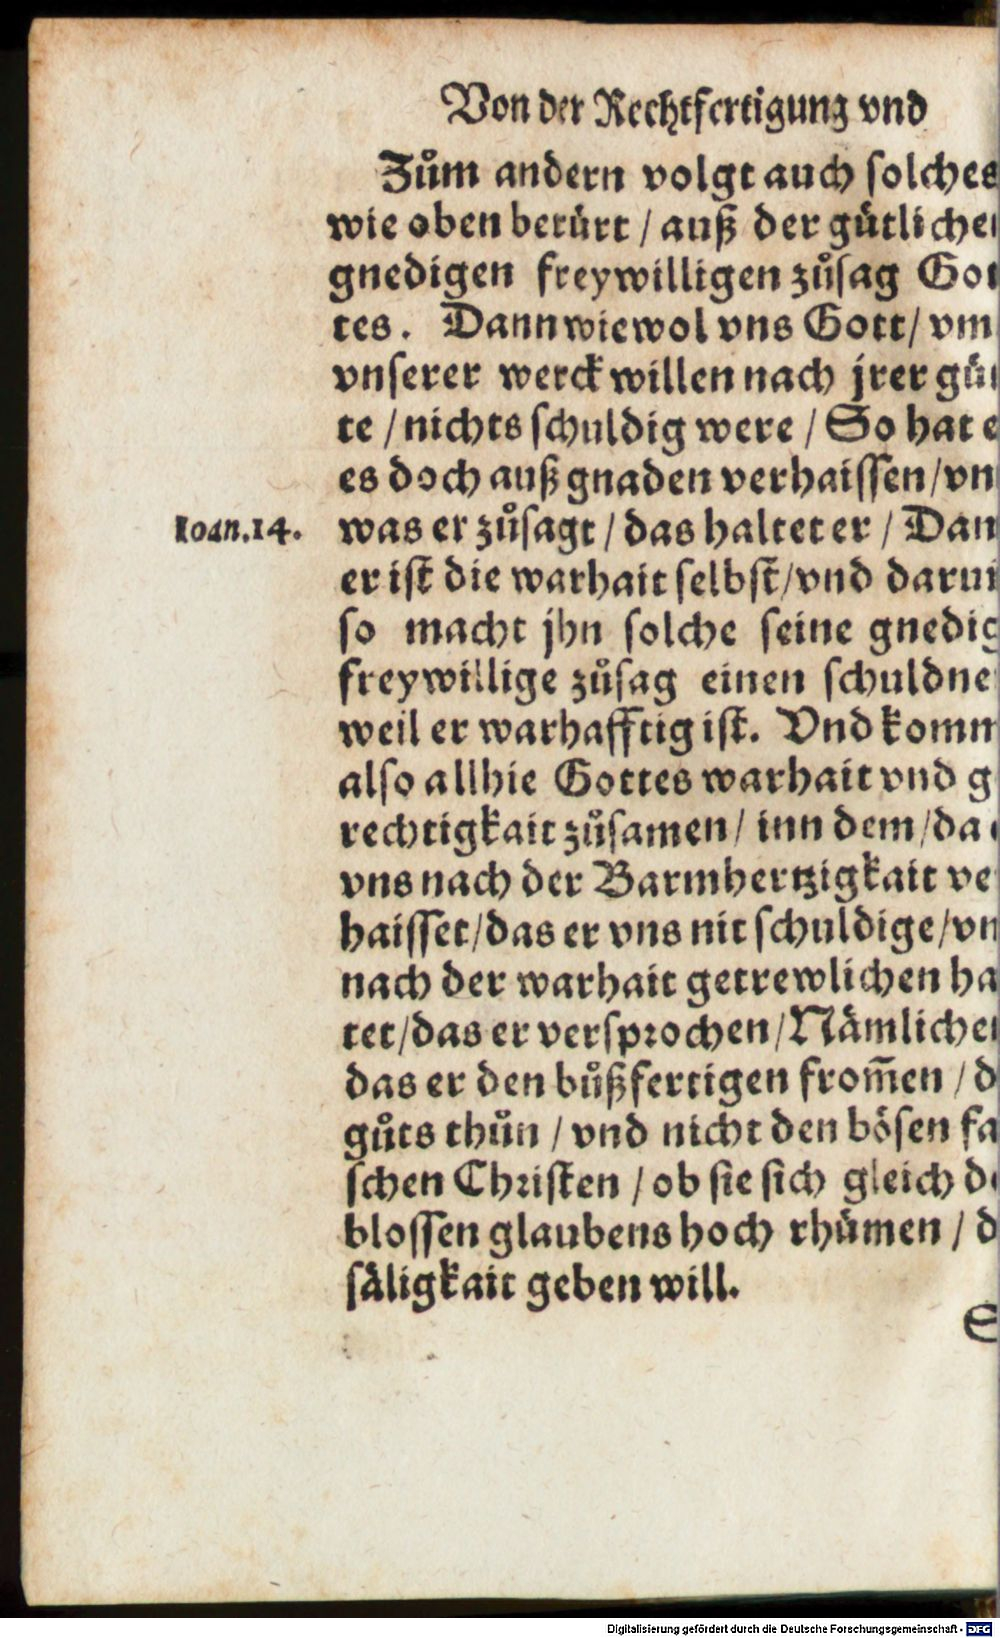 Von der Rechtfertigung vnd
Zům andern volgt auch solches
wie oben berürt / auß der gütliche
gnedigen freywilligen zůsag Got
tes. Dann wiewol vns Gott / vm
vnserer werck willen nach jrer gü
te / nichts schuldig were / So hat e
es doch auß gnaden verhaissen / vn
Ioan.14.
was er zůsagt / das haltet er / Dan
er ist die warhait selbst / vnd daru
so macht jhn solche seine gnedig
freywillige zůsag einen schuldne
weil er warhafftig ist. Vnd komm
also allhie Gottes warhait vnd g
rechtigkait zůsamen / inn dem / da
vns nach der Barmhertzigkait ve
haisset / das er vns nit schuldige / vn
nach der warhait getrewlichen ha
tet / das er versprochen / Nämliche
das er den bůßfertigen from̃en / d
gůts thůn / vnd nicht den bösen fa
schen Christen / ob sie sich gleich de
blossen glaubens hoch rhümen / d
säligkait geben will.
S
Digitalisierung gefördert durch die Deutsche Forschungsgemeinschaft - DFG